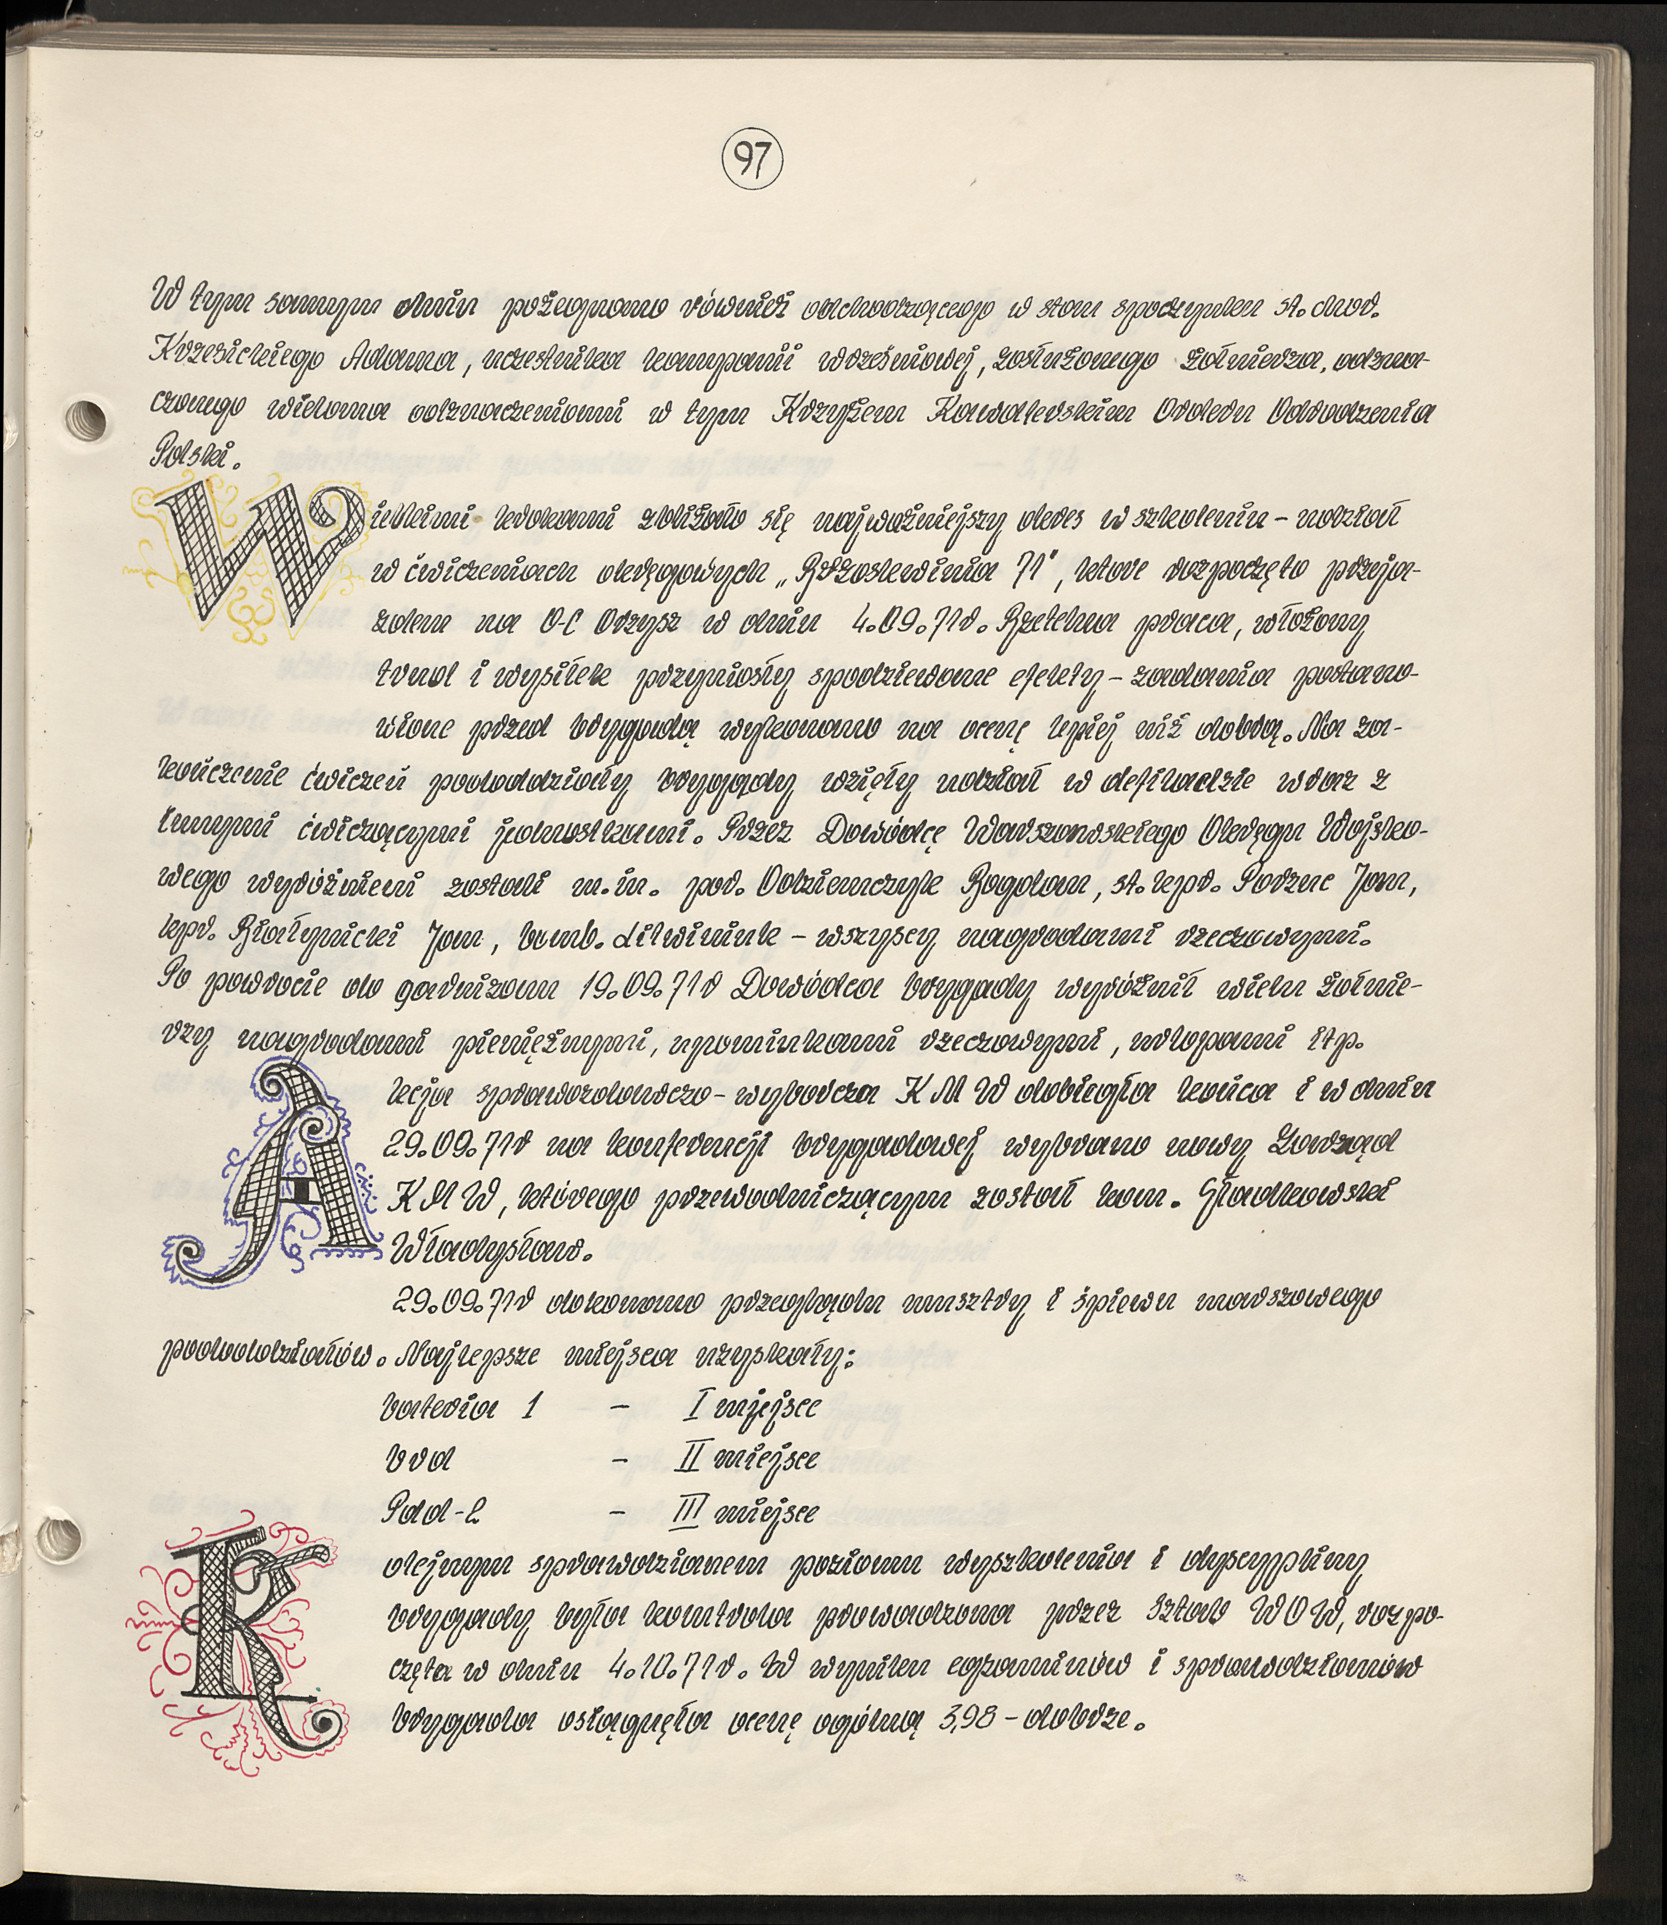 97
W tym samym dniu pożegnano również odchodzącego w stan spoczynku st. chor.
Krzesickiego Adama, uczestnika kampanii wrześniowej, zasłużonego żołnierza, odzna-
czonego wieloma odznaczeniami w tym Krzyżem Kawalerskim Orderu Odrodzenia
Polski.
Wielkimi krokami zbliżało się najważniejszy okres w szkoleniu – udział
w ćwiczeniach okręgowych „Brzoskwinia 71", które rozpoczęto przeja-
zdem na O-C Orzysz w dniu 4.09.71r. Rzetelna praca, włożony
trud i wysiłek przyniosły spodziewane efekty – zadania postano-
wione przed brygadą wykonano na ocenę lepiej niż dobrą. Na za-
kończenie ćwiczeń pododdziały brygady wzięły udział w defiladzie wraz z
innymi ćwiczącymi jednostkami. Przez Dowódcę Warszawskiego Okręgu Wojsko-
wego wyróżnieni zostali m.in. por. Odziemczyk Bogdan, st. kpr. Podzuc Jan,
kpr. Białynicki Jan, bomb. Litwiniuk – wszyscy nagrodami rzeczowymi.
Po powrocie do garnizonu 19.09.71r Dowódca brygady wyróżnił wielu żołnie-
rzy nagrodami pieniężnymi, upominkami rzeczowymi, urlopami itp.
Akcja sprawozdawczo-wyborcza KMW dobiegła końca i w dniu
29.09.71r na konferencji brygadowej wybrano nowy Zarząd
KMW, którego przewodniczącym został kan. Gładkowski
Władysław.
29.09.71r dokonano przeglądu musztry i śpiewu marszowego
pododdziałów. Najlepsze miejsca uzyskały:
bateria 1 – I miejsce
brd – II miejsce
Pdd-2 – III miejsce
Kolejnym sprawdzianem poziomu wyszkolenia i dyscypliny
brygady była kontrola prowadzona przez Sztab WOW, rozpo-
częta w dniu 4.10.71r. W wyniku egzaminów i sprawdzianów
brygada osiągnęła ocenę ogólną 3,98 – dobrze.